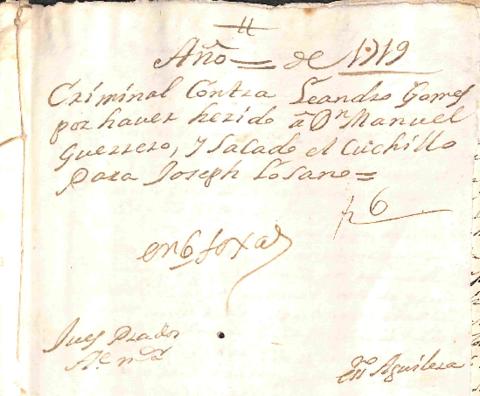 Año = de 1719
Criminal Contra Leandro Gomes
por haver herido a Dn Manuel
Guerrero, y Sacado el Cuchillo
para Joseph Losano =
6
en 6 foxas
Jues Prador
Aguilera